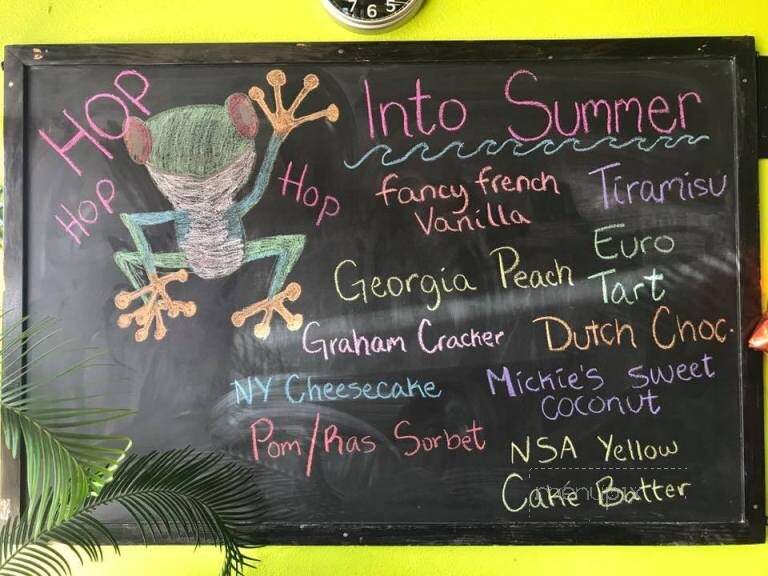 7 6 5
HOP
HOP
Hop
Into Summer
fancy french
Vanilla
Tiramisu
Georgia Peach
Euro
Tart
Graham Cracker
Dutch Choc.
NY Cheesecake
Mickie's sweet
coconut
Pom/Ras Sorbet
NSA Yellow
Cake Batter
menupix